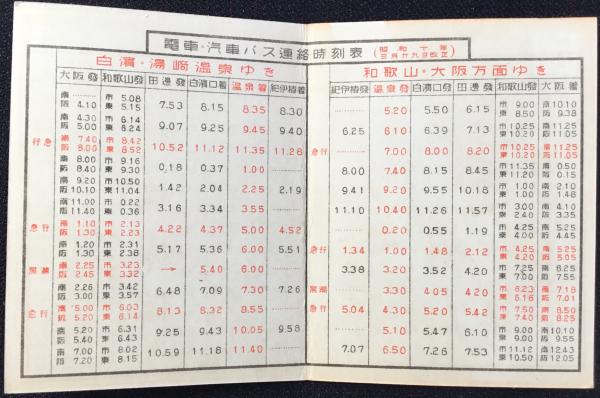 電車・汽車バス連絡時刻表 (昭和十年
三月廿九日改正)
白濱・湯崎温泉ゆき
大阪發 和歌山發 田邊發 白濱口着 温泉着 紀伊椿着
南 …… 市 5.08
阪 4.10 東 5.15 7.53 8.15 8.35 8.30
南 4.30 市 6.14
阪 5.00 東 6.24 9.07 9.25 9.45 9.40
南 7.40 市 8.42
行急 阪 8.00 東 8.52 10.52 11.12 11.35 11.28
南 8.00 市 9.16
阪 8.40 東 9.30 0.18 0.37 1.00 ……
南 9.20 市 10.50
阪 10.10 東 11.04 1.42 2.04 2.25 2.19
南 11.00 市 0.22
阪 11.40 東 0.36 3.16 3.34 3.55 ……
南 1.10 市 2.13
急行 阪 1.30 東 2.23 4.22 4.37 5.00 4.52
南 1.20 市 2.31
阪 1.30 東 2.38 5.17 5.36 6.00 5.51
南 2.25 市 3.23
黑潮 阪 2.45 東 3.32 → 5.40 6.00 ……
南 2.26 市 3.42
阪 3.00 東 3.57 6.48 7.09 7.30 7.26
南 5.00 市 6.03
急行 阪 5.20 東 6.14 8.13 8.32 8.55 ……
南 5.20 市 6.31
阪 5.40 東 6.43 9.25 9.43 10.05 9.58
南 7.00 市 8.02
阪 7.20 東 8.15 10.59 11.18 11.40 ……
和歌山・大阪方面ゆき
紀伊椿發 温泉發 白濱口發 田邊發 和歌山發 大阪着
市 9.00 南 10.10
…… 5.20 5.50 6.15 東 8.50 阪 9.38
市 10.25 南 11.25
6.25 6.10 6.39 7.13 東 10.20 阪 11.05
市 10.25 南 11.25
急行 …… 7.00 8.00 8.20 東 10.20 阪 11.05
市 11.35 南 0.50
8.00 7.40 8.15 8.45 東 11.20 阪 0.15
市 1.00 南 2.10
9.41 9.20 9.55 10.18 東 1.00 阪 1.48
市 3.00 南 4.10
11.10 10.40 11.26 11.57 東 2.40 阪 3.35
市 4.20 南 5.25
…… 0.20 0.55 1.19 東 4.25 阪 4.45
市 4.25 南 5.25
急行 1.34 1.00 1.48 2.12 東 4.20 阪 5.05
市 7.25 南 8.25
3.38 3.20 3.52 4.20 東 7.00 阪 7.55
市 6.23 南 7.18
黑潮 …… 3.30 4.05 4.20 東 6.16 阪 7.01
市 7.50 南 8.50
急行 5.04 4.30 5.20 5.42 東 7.40 阪 8.25
市 9.00 南 10.10
…… 5.10 5.47 6.10 東 9.00 阪 9.55
市 11.12 南 12.43
7.07 6.50 7.26 7.53 東 10.50 阪 12.05